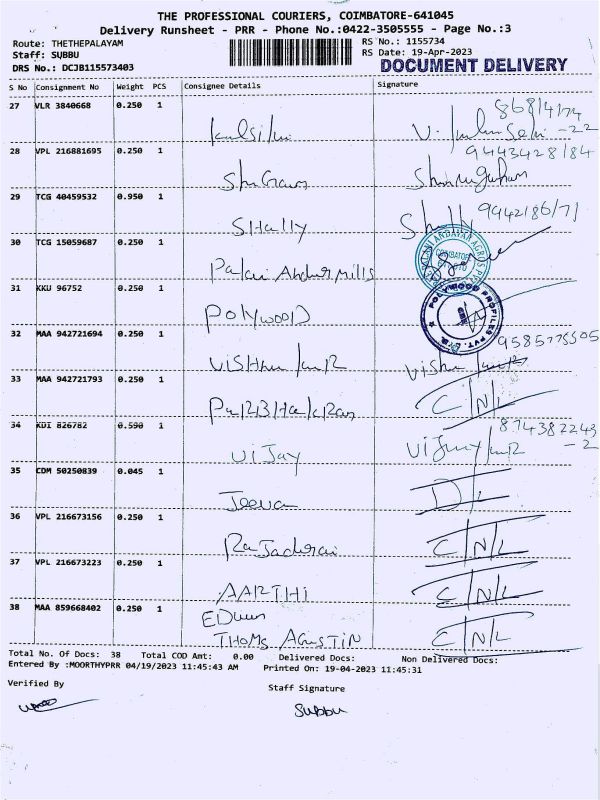 THE PROFESSIONAL COURIERS, COIMBATORE-641045
Delivery Runsheet - PRR - Phone No.:0422-3505555 - Page No.:3
Route: THETHEPALAYAM
RS No.: 1155734
Staff: SUBBU
RS Date: 19-Apr-2023
DRS No.: DCJB115573403
DOCUMENT DELIVERY
S No Consignment No Weight PCS Consignee Details Signature
27 VLR 3840668 0.250 1
28 VPL 216881695 0.250 1
9443428184
Shanmugham
29 TCG 40459532 0.950 1
SHally 9942186171
30 TCG 15059687 0.250 1
Mills
31 KKU 96752 0.250 1
POLYWOOD
POLYWOOD PROFILES PVT.
32 MAA 942721694 0.250 1
9585775505
33 MAA 942721793 0.250 1
C/N/L
34 KDI 826782 0.590 1
874382243
-2
Vijay
35 CDM 50250839 0.045 1
Jeeva D/L
36 VPL 216673156 0.250 1
C/N/L
37 VPL 216673223 0.250 1
AARTHI C/N/L
38 MAA 859668402 0.250 1
THOMS AGUSTIN C/N/L
Total No. Of Docs: 38 Total COD Amt: 0.00 Delivered Docs: Non Delivered Docs:
Entered By :MOORTHYPRR 04/19/2023 11:45:43 AM Printed On: 19-04-2023 11:45:31
Verified By
Staff Signature
Subbu